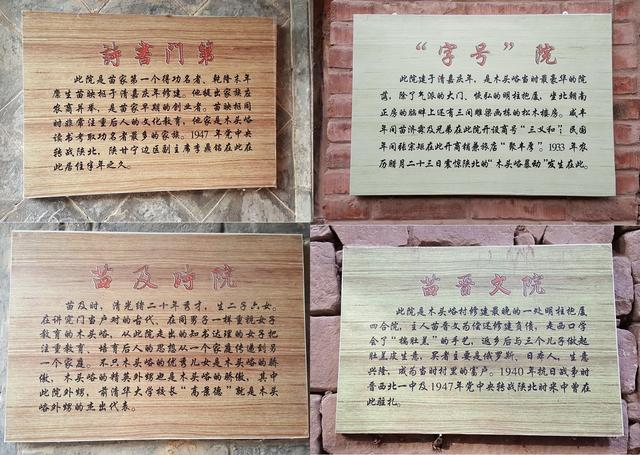 詩書門第
此院是苗家第一个得功名者，乾隆末年
廪生苗映相于清嘉庆年修建。他提出家族应
农商并举，是苗家早期的创业者。苗映相同
时非常注重后人的文化教育，他家是木头峪
读书考取功名者最多的家族。1947年党中央
转战陕北，陕甘宁边区副主席李鼎铭在此在
此居住半年之久。
“字号”院
此院建于清嘉庆年，是木头峪当时最豪华的院
落，除了气派的大门、恢弘的明柱抱厦，坐北朝南
正房的脑畔上还有三间雕梁画栋的松木楼房。咸丰
年间苗济斋及兄弟在此院开设商号“三义和”；民国
年间张宗垣在此开商铺兼旅店“聚丰厚”。1933年农
历腊月二十三日震惊陕北的“木头峪暴动”发生在此。
苗及时院
苗及时，清光绪二十年秀才，生二子六女。
在讲究门当户对的古代、在同男子一样重视女子
教育的木头峪，从此院走出的知书达理的女子把
注重教育、培育后人的思想从一个家庭传递到另
一个家庭。不只木头峪的优秀儿女是木头峪的骄
傲，木头峪的精英外甥也是木头峪的骄傲，其中
此院外甥，前清华大学校长“高景德”就是木头
峪外甥的杰出代表。
苗晋文院
此院是木头峪村修建最晚的一处明柱抱厦
四合院，主人苗晋文为偿还修建负债，走西口学
会了“搞肚盖”的手艺，返乡后与三个儿子做起
肚盖皮生意，买者主要是俄罗斯、日本人，生意
兴隆，成为当时村里的富户。1940年抗日战争时
晋西北一中及1947年党中央转战陕北时米中曾在
此驻扎。